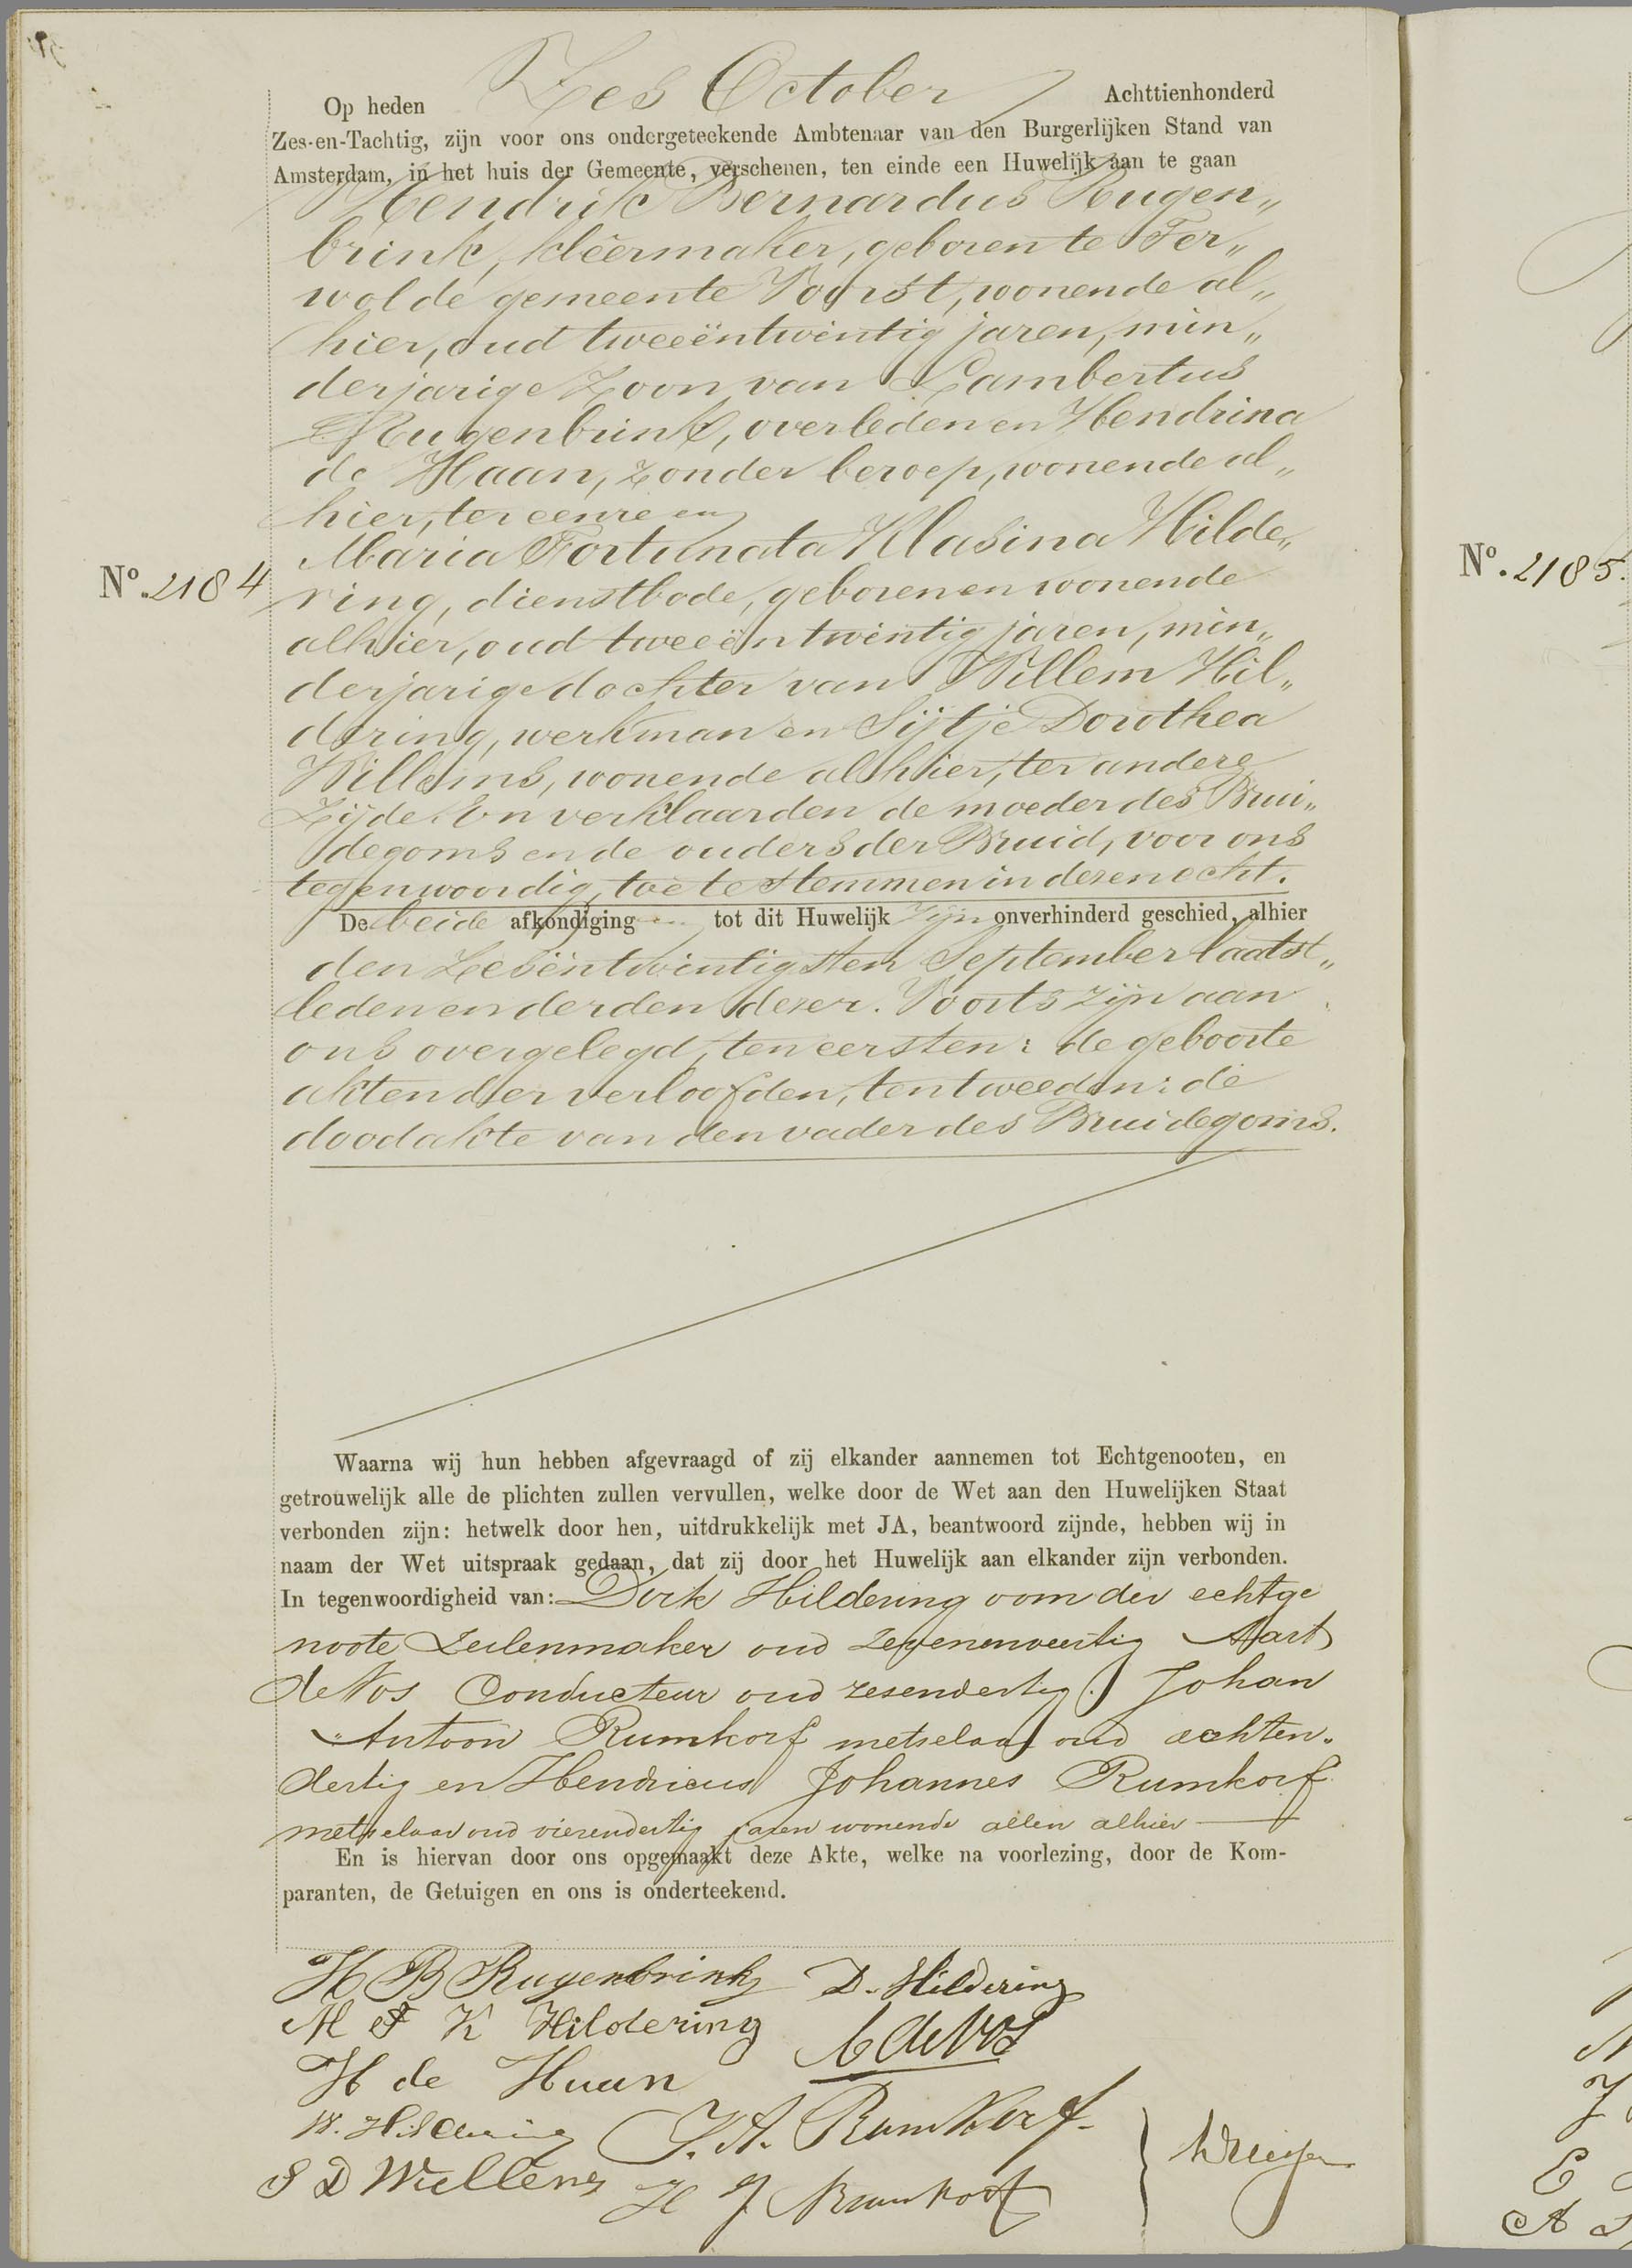 Op heden Zes October Achttienhonderd
Zes-en-Tachtig, zijn voor ons ondergeteekende Ambtenaar van den Burgerlijken Stand van
Amsterdam, in het huis der Gemeente, verschenen, ten einde een Huwelijk aan te gaan
Hendrik Bernardus Rugen„
brink, kleêrmaker, geboren te Ter„
wolde gemeente Voorst, wonende al„
hier, oud tweeëntwintig jaren, min„
derjarige Zoon van Lambertus
Rugenbrink, overleden en Hendrina
de Haan, zonder beroep, wonende al„
hier, ter eenre en
Maria Fortunata Klasina Hilde„
No. 2184
ring, dienstbode, geboren en wonende
alhier, oud tweeëntwintig jaren, min„
derjarige dochter van Willem Hil„
dering, werkman en Sijtje Dorothea
Willems, wonende alhier, ter andere
Zijde. En verklaarden de moeder des Brui„
degoms en de ouders der Bruid, voor ons
tegenwoordig, toe te stemmen in dezen echt.
De beide afkondiging tot dit Huwelijk zijn onverhinderd geschied, alhier
den Zesëntwintigsten September laatst„
leden en derden dezer. Voorts zijn aan
ons overgelegd, ten eersten: de geboorte
akten der verloofden, ten tweeden: de
doodakte van den vader des Bruidegoms.
Waarna wij hun hebben afgevraagd of zij elkander aannemen tot Echtgenooten, en
getrouwelijk alle de plichten zullen vervullen, welke door de Wet aan den Huwelijken Staat
verbonden zijn: hetwelk door hen, uitdrukkelijk met JA, beantwoord zijnde, hebben wij in
naam der Wet uitspraak gedaan, dat zij door het Huwelijk aan elkander zijn verbonden.
In tegenwoordigheid van: Dirk Hildering oom der echtge
noote Zeilenmaker oud zevenenveertig Aart
de Vos Conducteur oud zesendertig Johan
Antoon Rumkorf metselaar oud achten„
dertig en Hendricus Johannes Rumkorf
metselaar oud vierendertig jaren wonende allen alhier
En is hiervan door ons opgemaakt deze Akte, welke na voorlezing, door de Kom-
paranten, de Getuigen en ons is onderteekend.
H B Rugenbrink D. Hildering
M F K Hildering A de Vos
H de Haan
W. Hildering J. A. Rumkorf
S D Willems H J Rumkorf
No. 2185.